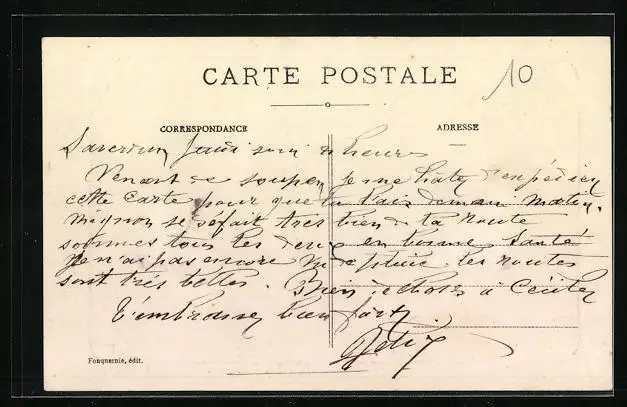 CARTE POSTALE
10
CORRESPONDANCE
ADRESSE
Saverdun Jeudi soir 8 heures
Venant de souper je me hâte d'expédier
cette carte pour que tu l'ais demain matin.
Mignon se fait très bien à la route
sommes tous les deux en bonne Santé
Je n'ai pas encore vu de pluie. les routes
sont très belles. Bien des choses à
T'embrasse bien fort
Fouquernie, édit.